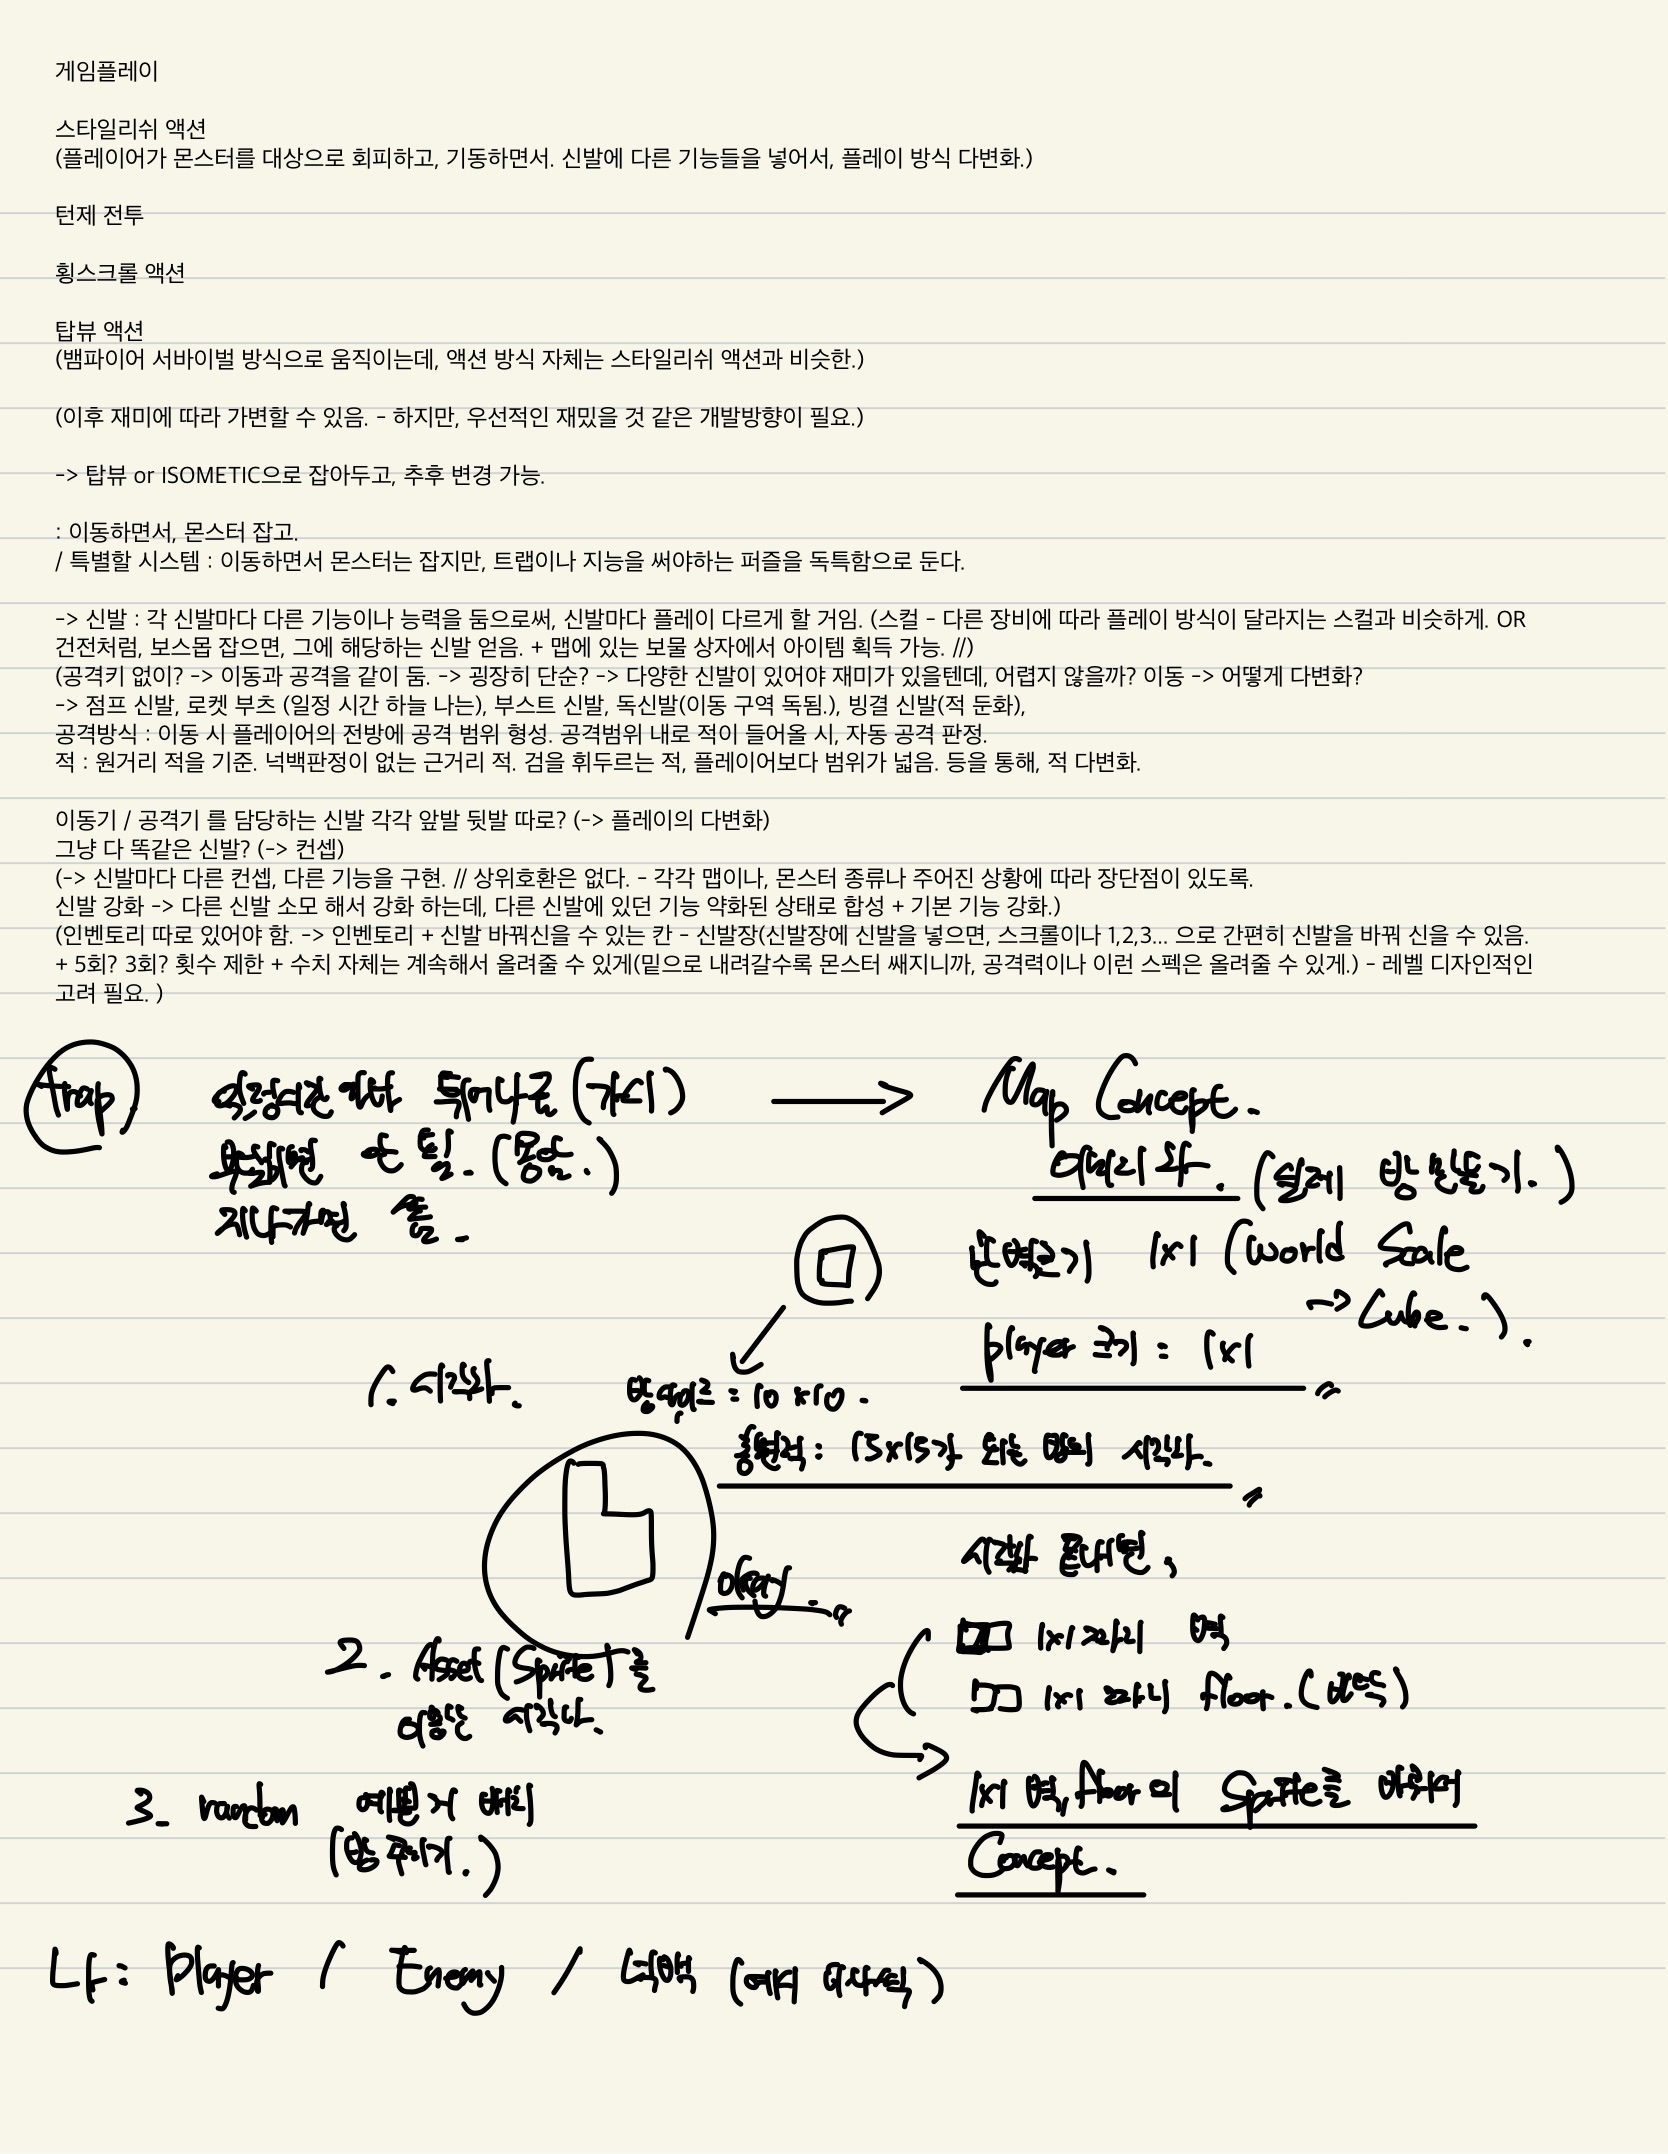 게임플레이
스타일리쉬 액션
(플레이어가 몬스터를 대상으로 회피하고, 기동하면서. 신발에 다른 기능들을 넣어서, 플레이 방식 다변화.)
턴제 전투
횡스크롤 액션
탑뷰 액션
(뱀파이어 서바이벌 방식으로 움직이는데, 액션 방식 자체는 스타일리쉬 액션과 비슷한.)
(이후 재미에 따라 가변할 수 있음. - 하지만, 우선적인 재밌을 것 같은 개발방향이 필요.)
-> 탑뷰 or ISOMETIC으로 잡아두고, 추후 변경 가능.
: 이동하면서, 몬스터 잡고.
/ 특별할 시스템 : 이동하면서 몬스터는 잡지만, 트랩이나 지능을 써야하는 퍼즐을 독특함으로 둔다.
-> 신발 : 각 신발마다 다른 기능이나 능력을 둠으로써, 신발마다 플레이 다르게 할 거임. (스컬 - 다른 장비에 따라 플레이 방식이 달라지는 스컬과 비슷하게. OR
건전처럼, 보스몹 잡으면, 그에 해당하는 신발 얻음. + 맵에 있는 보물 상자에서 아이템 획득 가능. //)
(공격키 없이? -> 이동과 공격을 같이 둠. -> 굉장히 단순? -> 다양한 신발이 있어야 재미가 있을텐데, 어렵지 않을까? 이동 -> 어떻게 다변화?
-> 점프 신발, 로켓 부츠 (일정 시간 하늘 나는), 부스트 신발, 독신발(이동 구역 독됨.), 빙결 신발(적 둔화),
공격방식 : 이동 시 플레이어의 전방에 공격 범위 형성. 공격범위 내로 적이 들어올 시, 자동 공격 판정.
적 : 원거리 적을 기준. 넉백판정이 없는 근거리 적. 검을 휘두르는 적, 플레이어보다 범위가 넓음. 등을 통해, 적 다변화.
이동기 / 공격기 를 담당하는 신발 각각 앞발 뒷발 따로? (-> 플레이의 다변화)
그냥 다 똑같은 신발? (-> 컨셉)
(-> 신발마다 다른 컨셉, 다른 기능을 구현. // 상위호환은 없다. - 각각 맵이나, 몬스터 종류나 주어진 상황에 따라 장단점이 있도록.
신발 강화 -> 다른 신발 소모 해서 강화 하는데, 다른 신발에 있던 기능 약화된 상태로 합성 + 기본 기능 강화.)
(인벤토리 따로 있어야 함. -> 인벤토리 + 신발 바꿔신을 수 있는 칸 - 신발장(신발장에 신발을 넣으면, 스크롤이나 1,2,3... 으로 간편히 신발을 바꿔 신을 수 있음.
+ 5회? 3회? 횟수 제한 + 수치 자체는 계속해서 올려줄 수 있게(밑으로 내려갈수록 몬스터 쌔지니까, 공격력이나 이런 스펙은 올려줄 수 있게.) - 레벨 디자인적인
고려 필요. )
trap 일정시간마다 튀어나옴 (가시) → Map Concept.
안 됨. (용암.)
지나가면
(실제 방 만들기.)
1x1 (World Scale
→ Cube.).
player 크기 = 1x1
1. 시각화. 방사이즈 = 10 x 10.
15x15가 되는 맵의 시각화.
시각화 끝내면,
okay.
1x1 짜리 벽
1x1 짜리 floor. (바닥)
2. Asset (Sprite)를
이용한 시각화.
1x1 벽, floor의 Sprite를 바꾸며
Concept.
3. random 배치
나: Player / Enemy / 넉백